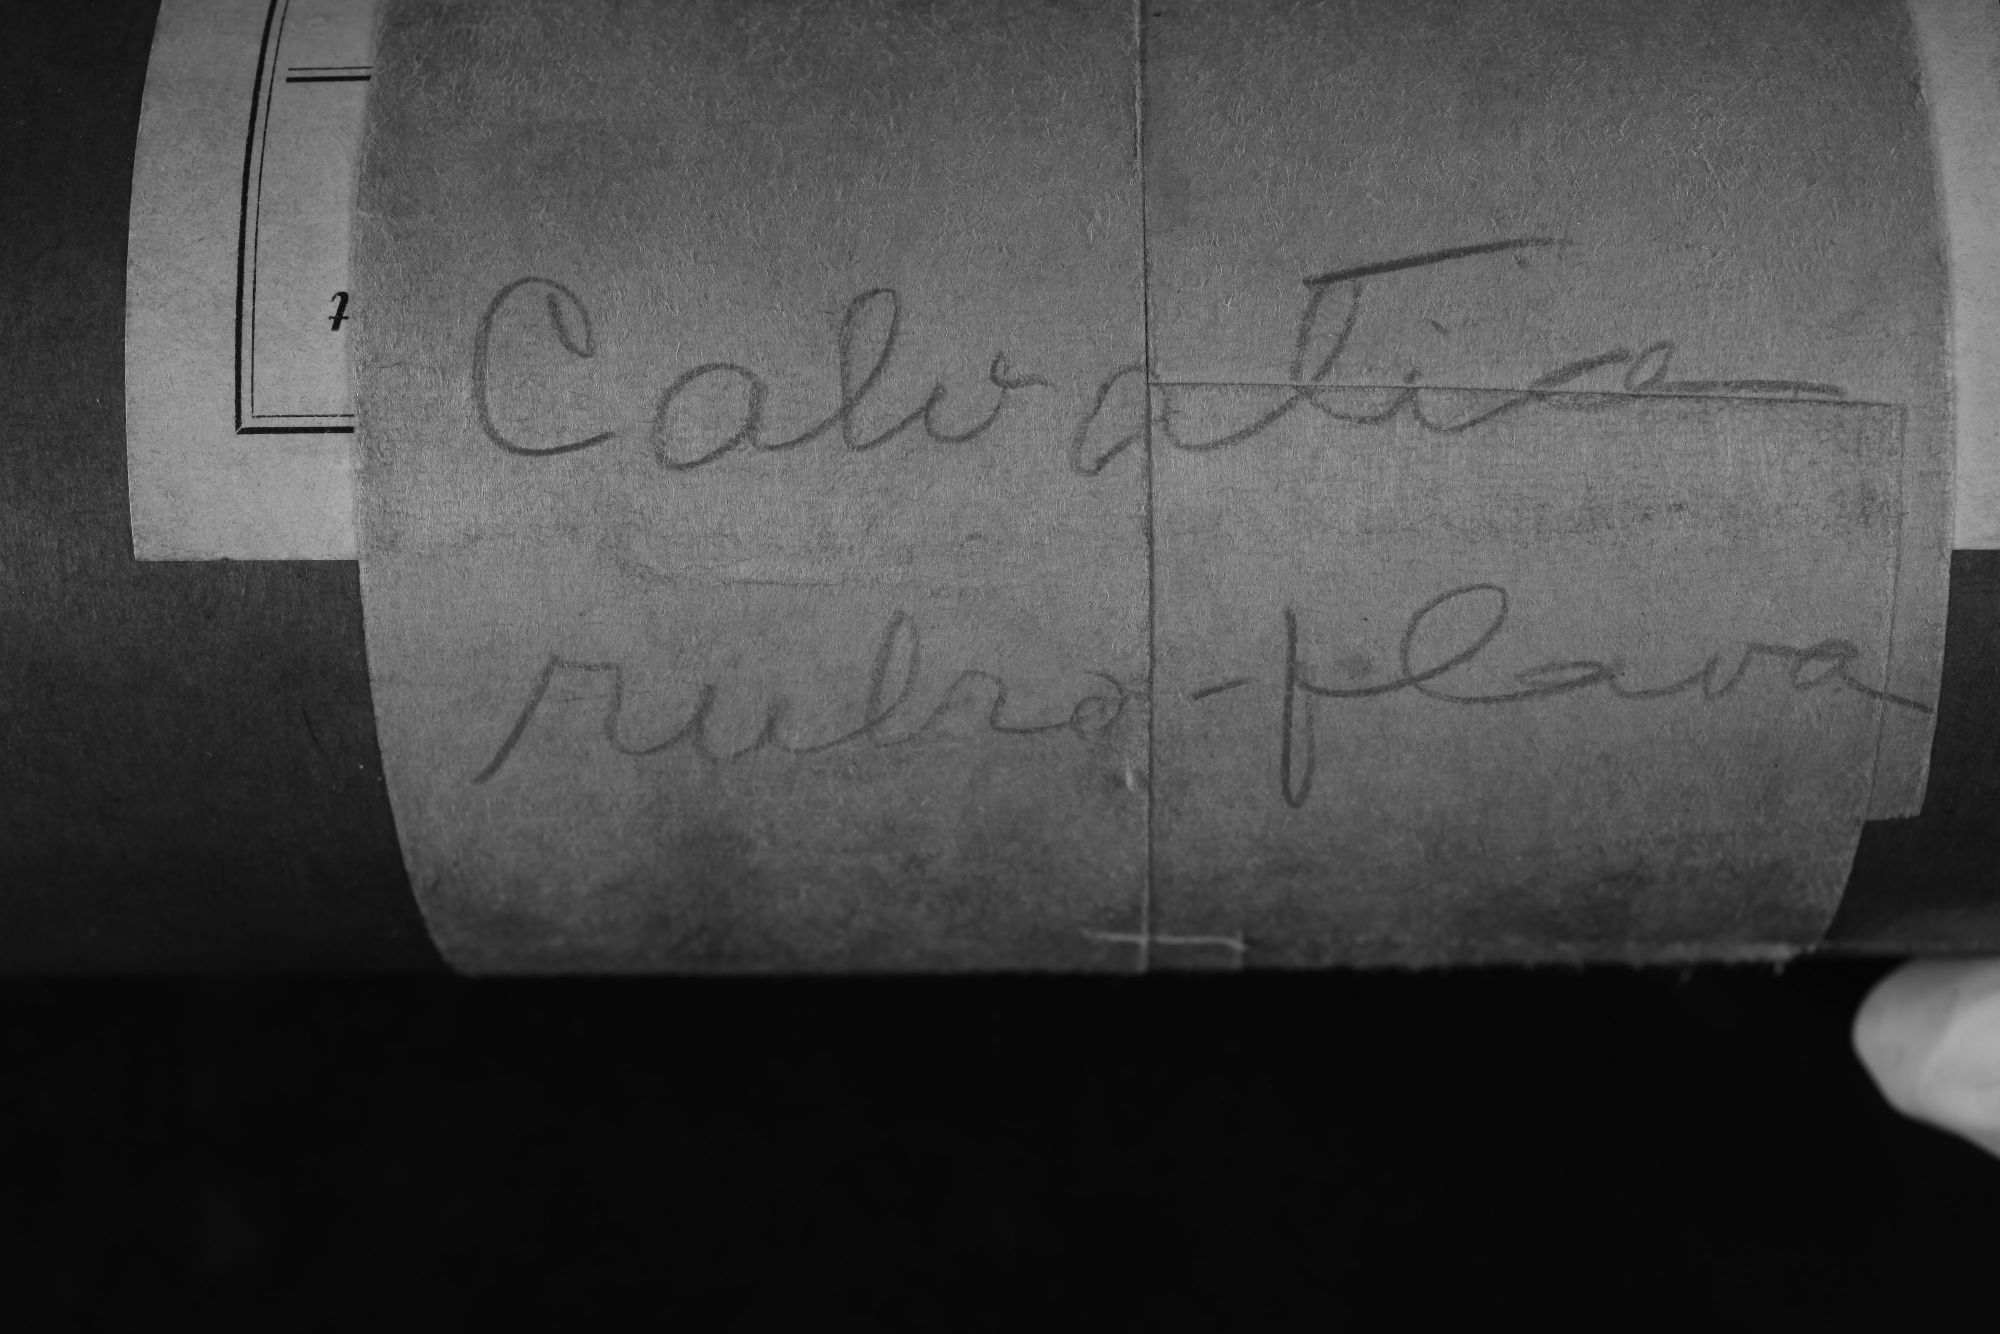 Calvatia
rubra-flava